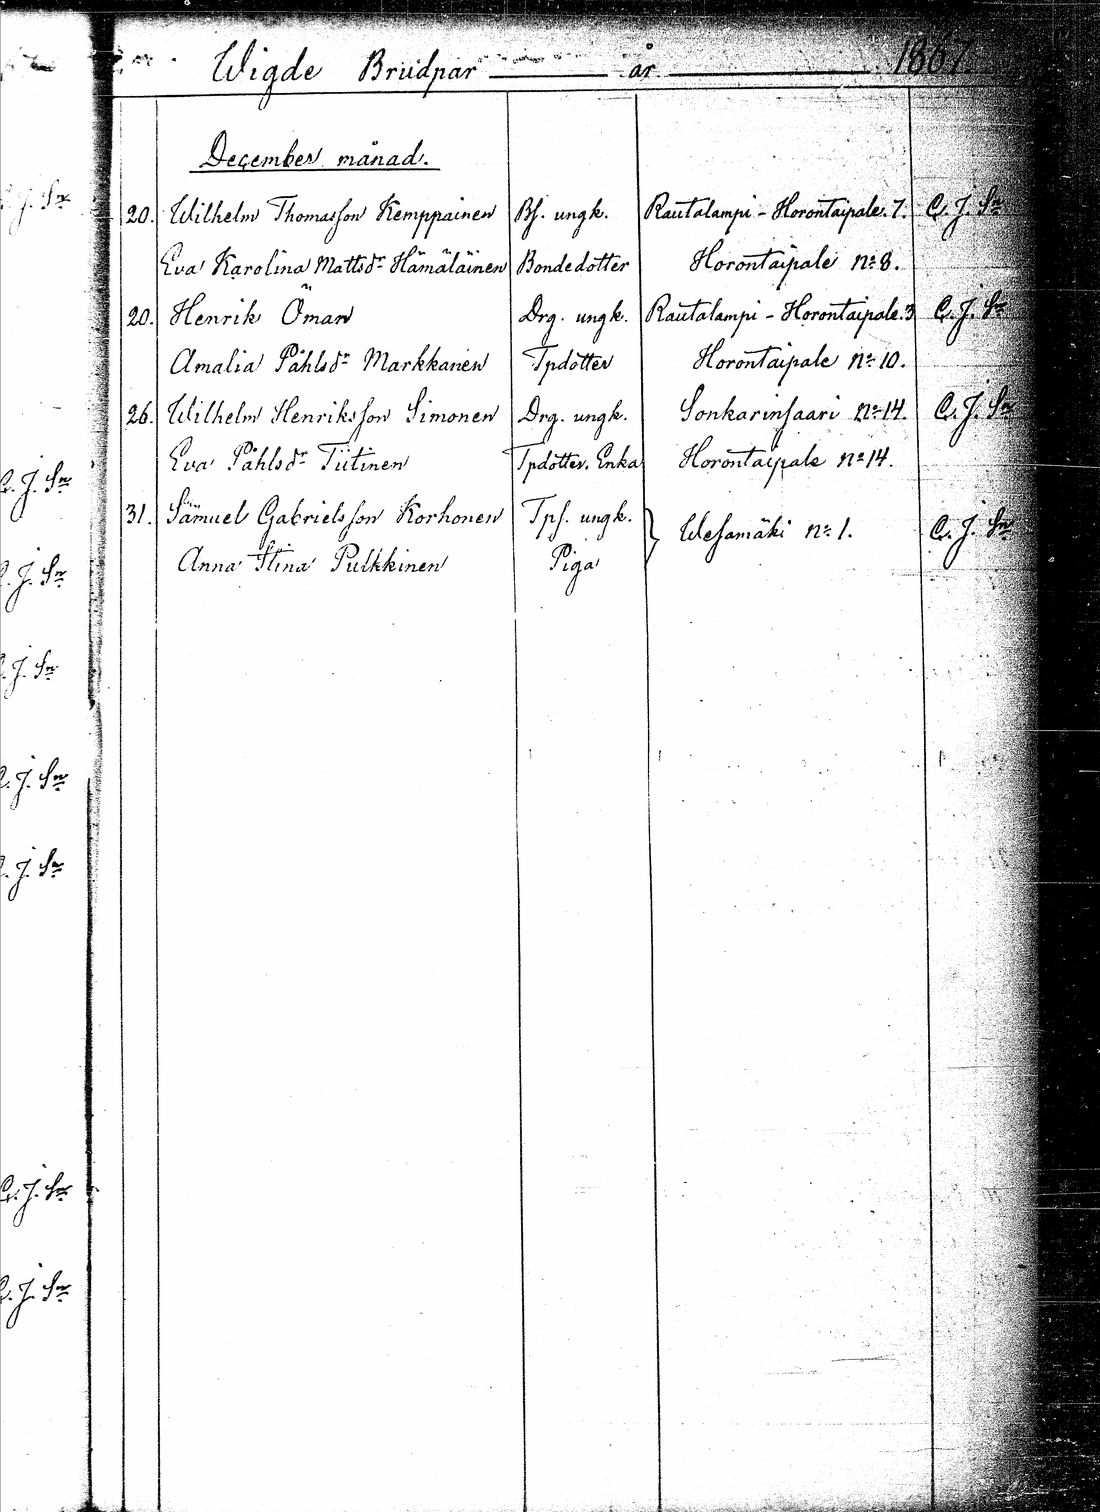 Wigde Brudpar år 1867.
December månad.
20. Wilhelm Thomasson Kemppainen Bs. ungk. Rautalampi - Horontaipale. 7. C. J. Sn
Eva Karolina Mattsdr Hämäläinen Bondedotter Horontaipale no 8.
20. Henrik Öman Drg. ungk. Rautalampi - Horontaipale. 3 C. J. Sn
Amalia Påhlsdr Markkanen Tpdotter Horontaipale no 10.
26. Wilhelm Henriksson Simonen Drg. ungk. Sonkarinsaari no 14. C. J. Sn
Eva Påhlsdr Tiitinen Tpdotter, Enka Horontaipale no 14.
31. Samuel Gabrielsson Korhonen Tps. ungk. Wesamäki no 1. C. J. Sn
Anna Stina Pulkkinen Piga